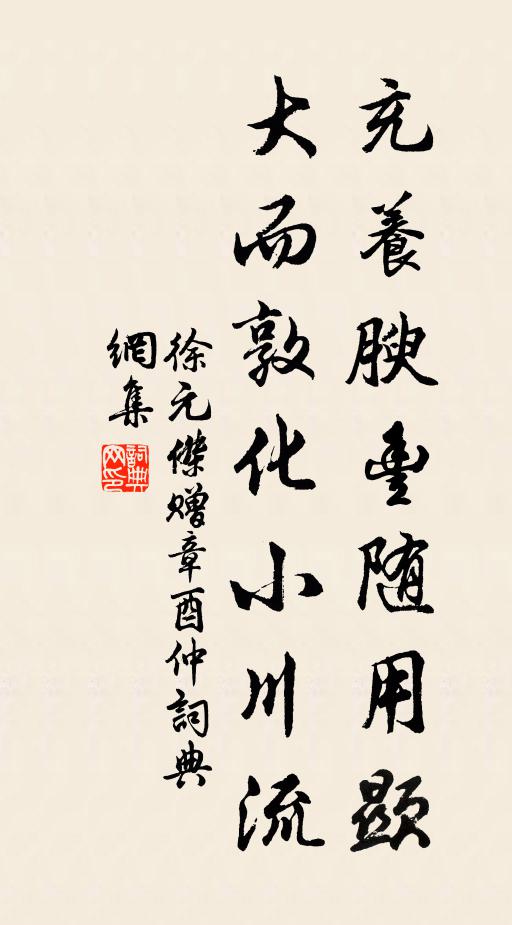 充養腴豊随用顯
大而敦化小川流
徐元傑贈章酉仲詞典
網集
詞典網印